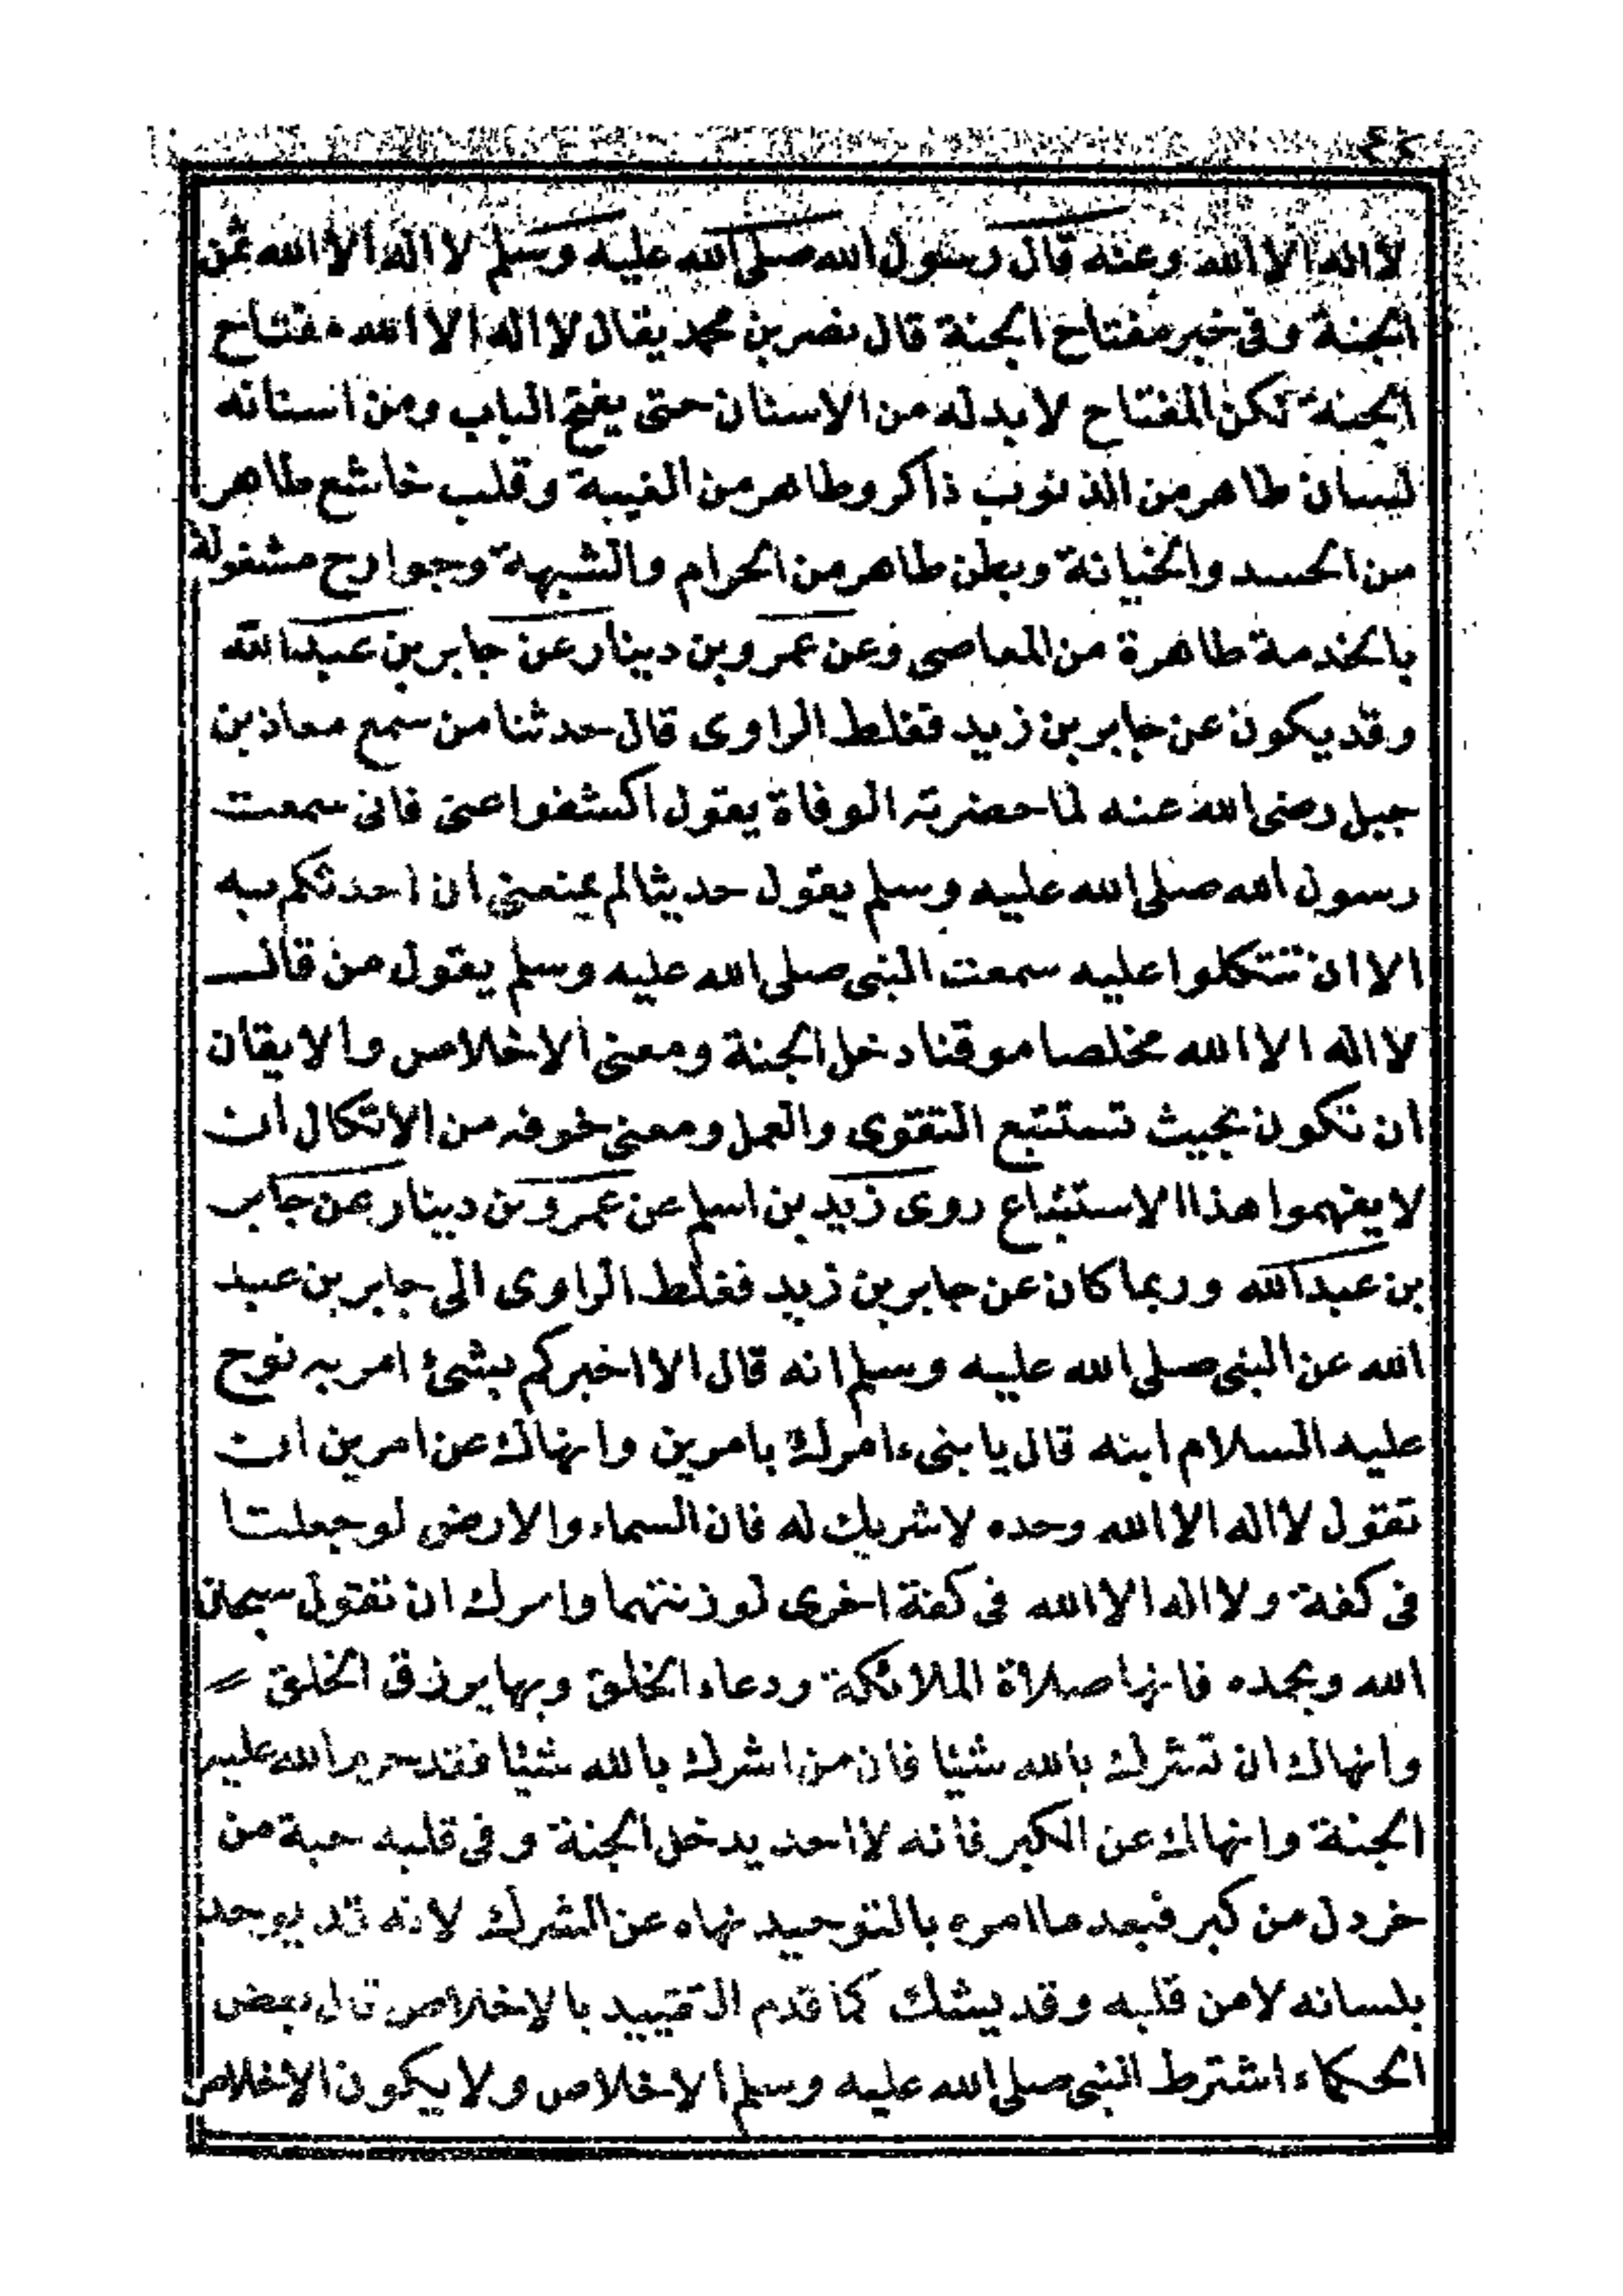 لا اله الا الله وعنه قال رسول الله صلى الله عليه وسلم لا اله الا الله ثمن
الجنة وفى خبر مفتاح الجنة قال نصر بن محمد يقال لا اله الا الله مفتاح
الجنة لكن المفتاح لا بد له من الاسنان حتى يفتح الباب ومن اسنانه
لسان طاهر من الذنوب ذاكر وطاهر من الغيبة وقلب خاشع طاهر
من الحسد والخيانة وبطن طاهر من الحرام والشبهة وجوارح مشغولة
بالخدمة طاهرة من المعاصى وعن عمرو بن دينار عن جابر بن عبد الله
وقد يكون عن جابر بن زيد فغلط الراوى قال حدثنا من سمع معاذ بن
جبل رضى الله عنه لما حضرته الوفاة يقول اكشفوا عنى فانى سمعت
رسول الله صلى الله عليه وسلم يقول حديثا لم يمنعنى ان احدثكم به
الا ان تتكلوا عليه سمعت النبى صلى الله عليه وسلم يقول من قال
لا اله الا الله مخلصا موقنا دخل الجنة ومعنى الاخلاص والايقان
ان تكون بحيث تستتبع التقوى والعمل ومعنى خوفه من الاتكال ان
لا يفهموا هذا الاستتباع روى زيد بن اسلم عن عمرو بن دينار عن جابر
بن عبد الله وربما كان عن جابر بن زيد فغلط الراوى الى جابر بن عبد
الله عن النبى صلى الله عليه وسلم انه قال الا اخبركم بشئ امر به نوح
عليه السلام ابنه قال يا بنى ءامرك بامرين وانهاك عن امرين ان
تقول لا اله الا الله وحده لا شريك له فان السماء والارض لو جعلتا
فى كفة ولا اله الا الله فى كفة اخرى لوزنتهما وامرك ان تقول سبحان
الله وبحمده فانها صلاة الملائكة ودعاء الخلق وبها يرزق الخلق
وانهاك ان تشرك بالله شيئا فان من اشرك بالله شيئا فقد حرم الله عليه
الجنة وانهاك عن الكبر فانه لا احد يدخل الجنة وفى قلبه حبة من
خردل من كبر فبعد ما امره بالتوحيد نهاه عن الشرك لانه قد يوحد
بلسانه لا من قلبه وقد يشك كما قدم التقييد بالاخلاص قال بعض
الحكماء اشترط النبى صلى الله عليه وسلم الاخلاص ولا يكون الاخلاص